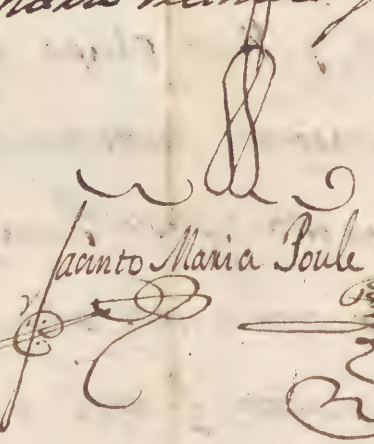 Jacinto Maria Poule